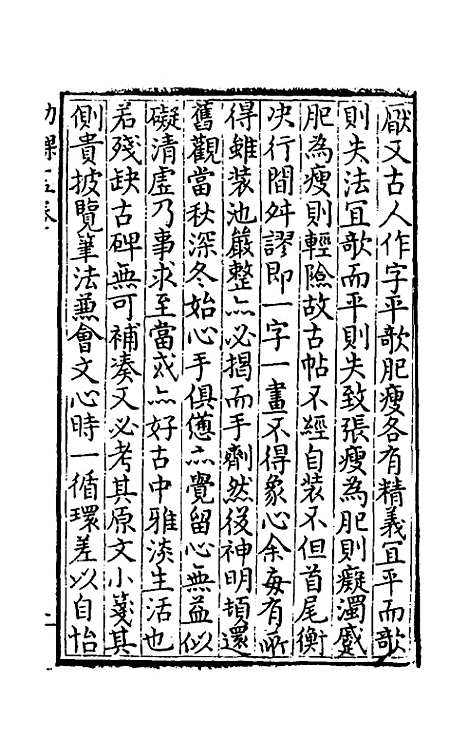 厭又古人作字平欹肥瘦各有精義宜平而欹
則失法宜欹而平則失致張瘦為肥則癡濁蹙
肥為瘦則輕險故古帖不經自裝不但首尾衡
决行間舛謬即一字一畫不得象心余每有所
得雖裝池嚴整亦必揭而手劑然後神明頓還
舊觀當秋深冬始心手俱憊亦覺留心無益似
礙清虛乃事求至當或亦好古中雅淡生活也
若殘缺古碑無可補湊又必考其原文小箋其
側貴披覽筆法兼會文心時一循環差以自怡